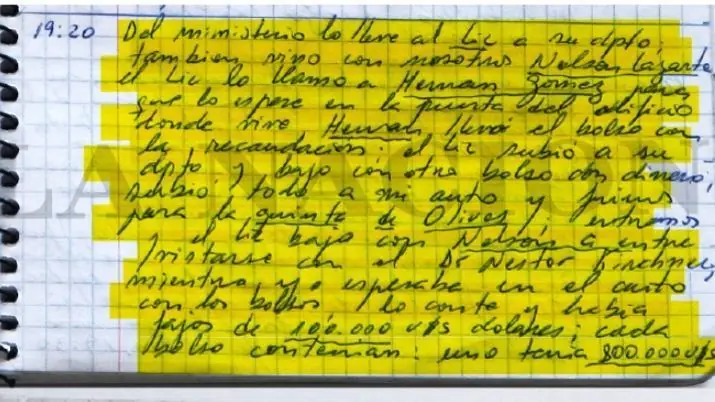 19:20 Del ministerio lo lleve al Lic a su dpto
tambien vino con nosotros Nelson Lazarte
el Lic lo llamo a Hernan Gomez para
que lo espere en la puerta del edificio
donde vive Hernan llevó el bolso con
la recaudacion, el Lic subio a su
dpto y bajo con otro bolso con dinero,
subio todo a mi auto y fuimos
para la quinta de Olivos; entramos
y el Lic bajo con Nelson a entre
vistarse con el Dr Nestor Kirchner,
mientras yo esperaba en el auto
con los bolsos, lo conte y habia
fajos de 100.000 u$s dolares; cada
bolso contenian: uno tenia 800.000 u$s
LA NACION